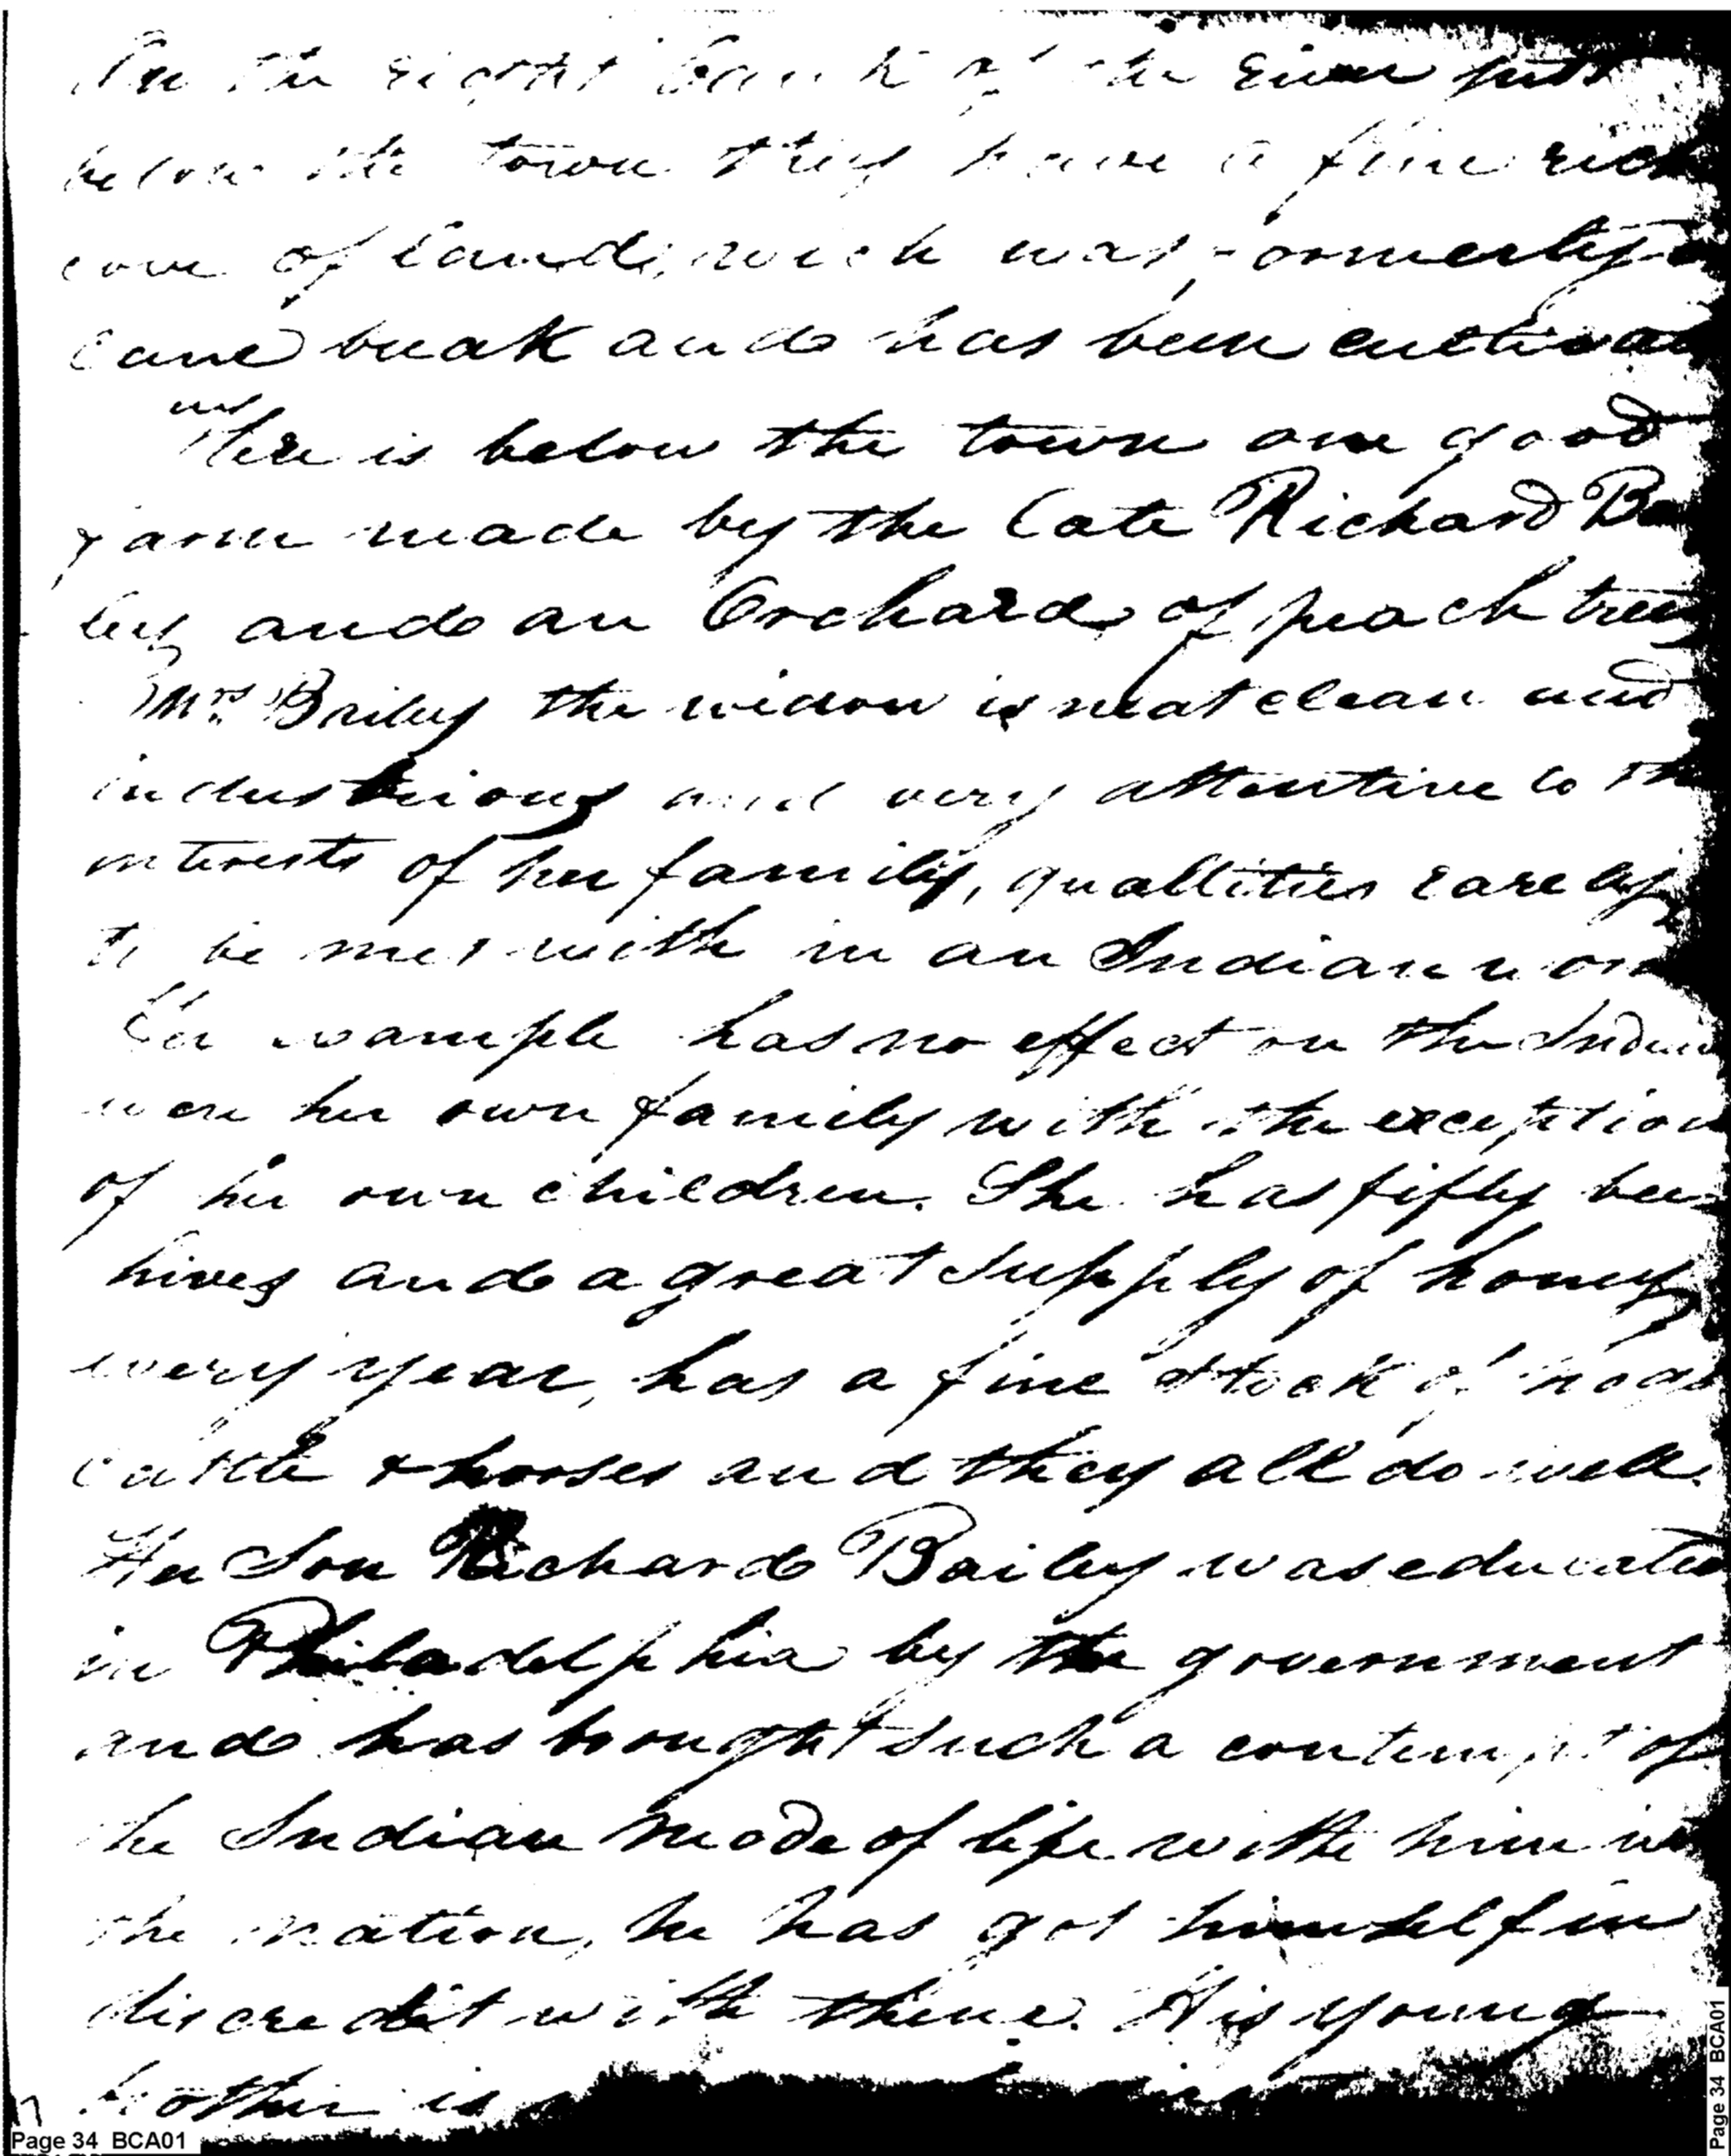 On the right bank of the river just
below the town they have a fine rich
cove of land, wich was formerly a
cane break and has been cultivat
There is below the town one good
farm made by the late Richard Ba
ley and an Orchard of peach trees
Mrs Bailey the widow is neat clean and
industrious and very attentive to the
interests of her family, quallities rarely
to be met with in an Indian wom
Her example has no effect on the Indians
even her own family with the exception
of her own children. She has fifty bee
hives and a great supply of honey
every year, has a fine stock of hogs
cattle & horses and they all do well.
Her Son Richard Bailey was educated
in Philadelphia by the government
and has brought such a contempt of
the Indian mode of life with him in
the nation, he has got himself in
discredit with them. His young
brother is
Page 34 BCA01
Page 34 BCA01